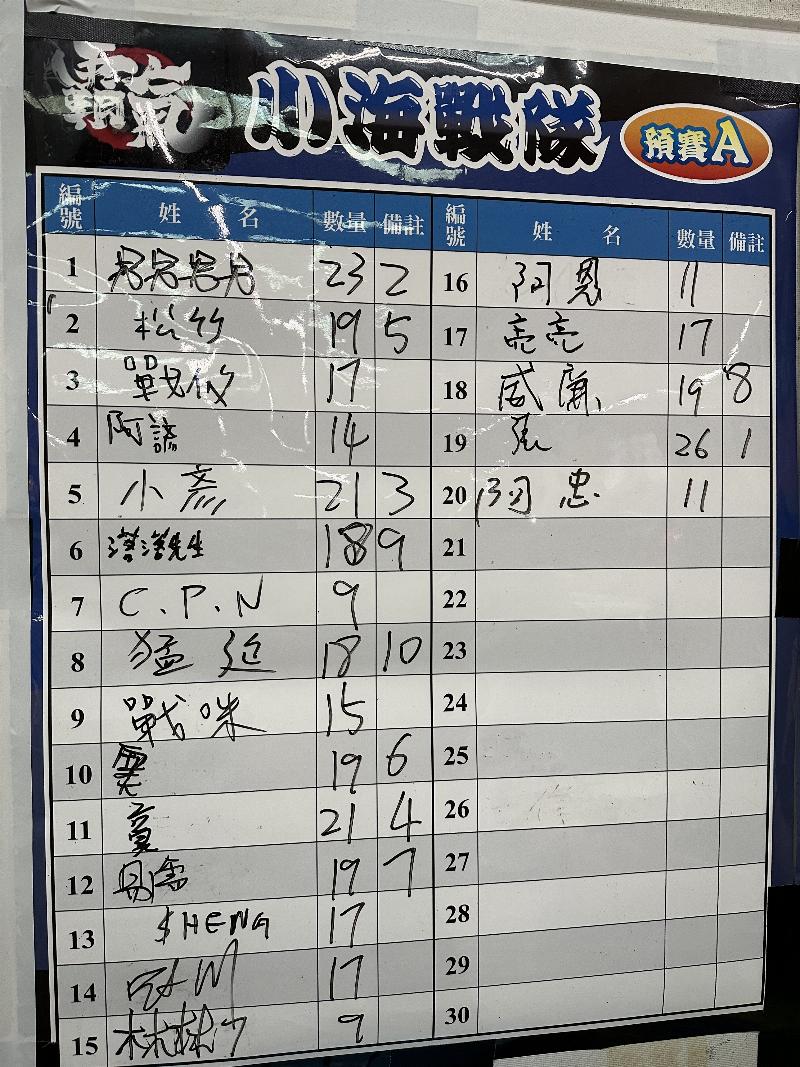 霸氣 小海戰隊 預賽A
編號 姓名 數量 備註
1 23 2
2 松竹 19 5
3 戰 17
4 阿諺 14
5 小齋 21 3
6 先生 18 9
7 C.P.N 9
8 猛 18 10
9 戰咪 15
10 19 6
11 21 4
12 19 7
13 $HENG 17
14 17
15 9
編號 姓名 數量 備註
16 阿恩 11
17 亮亮 17
18 威廉 19 8
19 張 26 1
20 阿忠 11
21
22
23
24
25
26
27
28
29
30